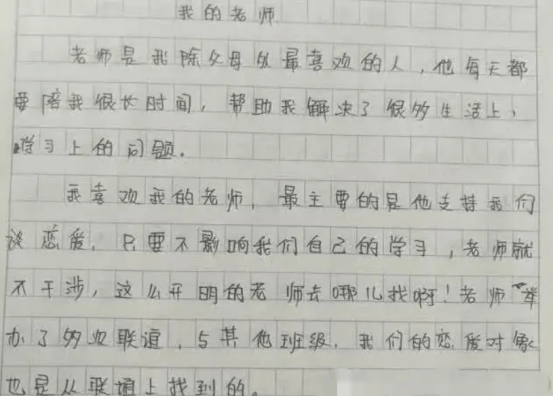 我的老师
老师是我除父母外最喜欢的人，他每天都
要陪我很长时间，帮助我解决了很多生活上，
学习上的问题。
我喜欢我的老师，最主要的是他支持我们
谈恋爱，只要不影响我们自己的学习，老师就
不干涉，这么开明的老师去哪儿找啊！老师举
办了多次联谊，与其他班级，我们的恋爱对象
也是从联谊上找到的。